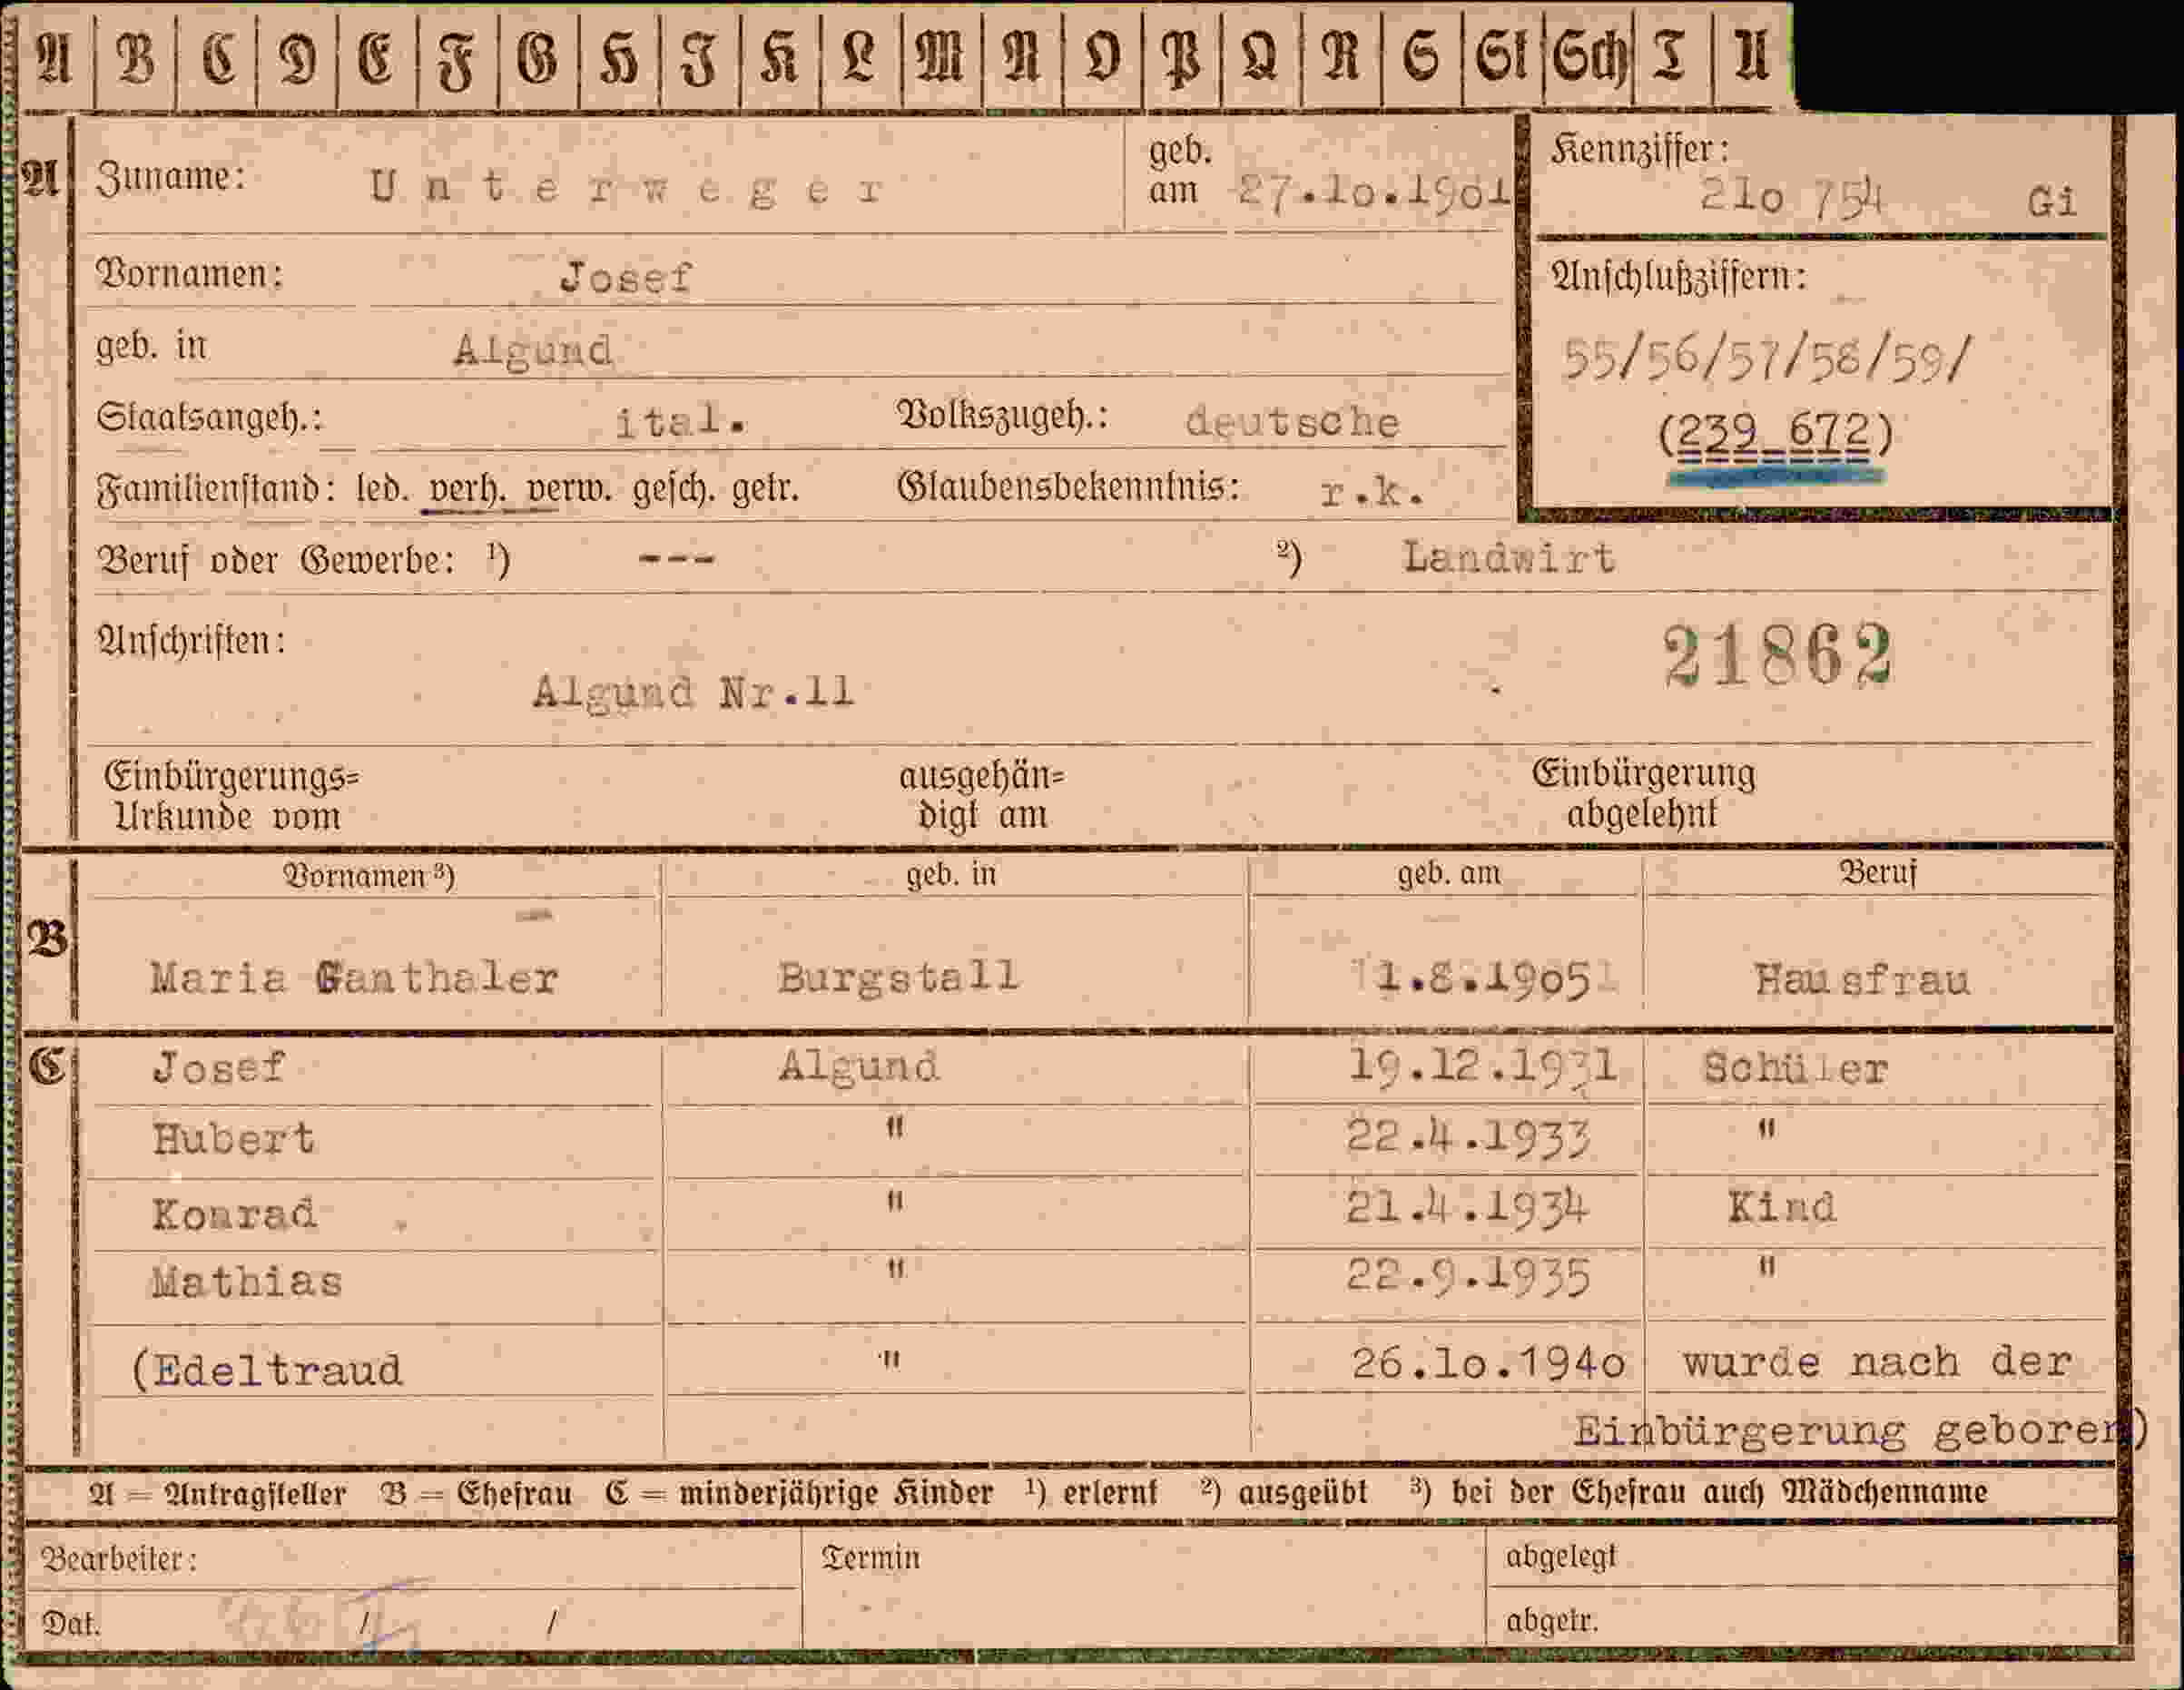 A B C D E F G H I K L M N O P Q R S St Sch T U
A Zuname: Unterweger geb. am 27.10.1901 Kennziffer: 210 754 Gi
Vornamen: Josef Anschlußziffern:
geb. in Algund 55/56/57/58/59/
Staatsangeh.: ital. Volkszugeh.: deutsche (239 672)
Familienstand: led. verh. verw. gesch. getr. Glaubensbekenntnis: r.k.
Beruf oder Gewerbe: ¹) --- ²) Landwirt
Anschriften: 21862
Algund Nr.11
Einbürgerungs= ausgehän= Einbürgerung
Urkunde vom digt am abgelehnt
Vornamen ³) geb. in geb. am Beruf
B Maria Ganthaler Burgstall 1.8.1905 Hausfrau
C Josef Algund 19.12.1931 Schüler
Hubert " 22.4.1933 "
Konrad " 21.4.1934 Kind
Mathias " 22.9.1935 "
(Edeltraud " 26.10.1940 wurde nach der
Einbürgerung geboren)
A = Antragsteller B = Ehefrau C = minderjährige Kinder ¹) erlernt ²) ausgeübt ³) bei der Ehefrau auch Mädchenname
Bearbeiter: Termin abgelegt
Dat. / / abgetr.